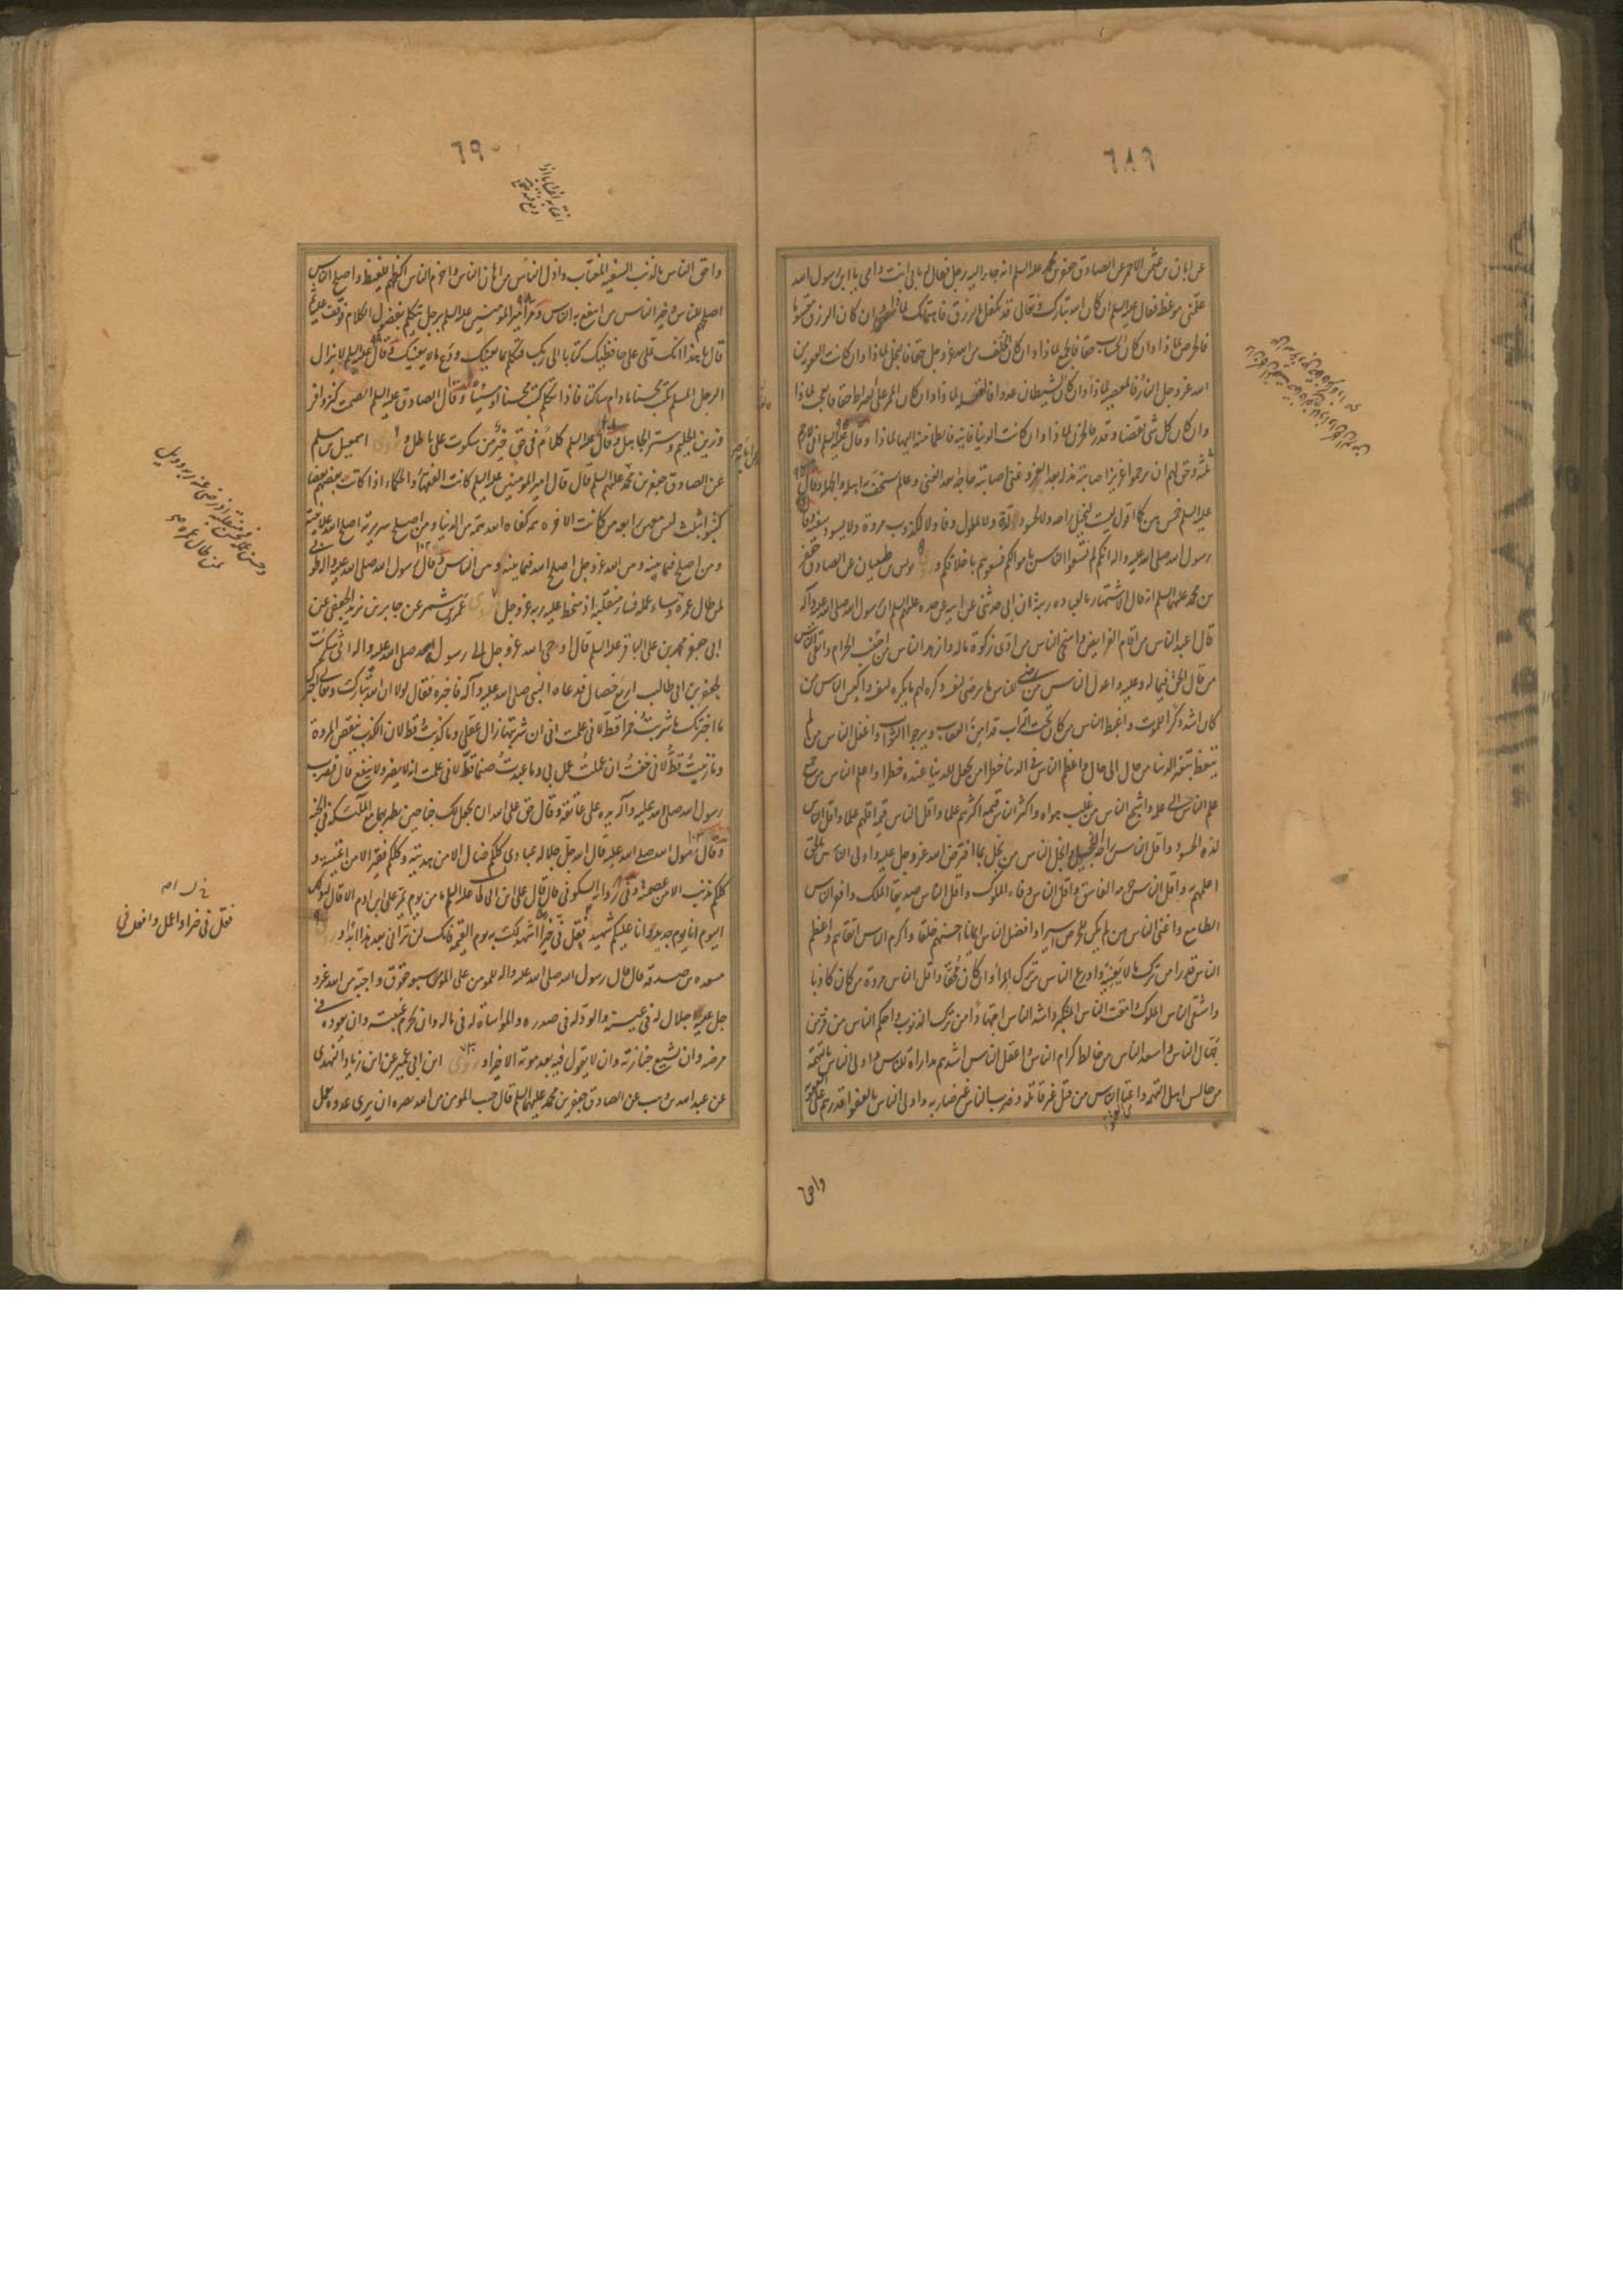 ٦٨٩
عن ابان بن عثمن الاحمر عن الصادق جعفر بن محمد عليه السلم انه جاء اليه رجل فقال له بابى انت وامى يا ابن رسول الله
علمنى موعظة فقال عليه السلم ان كان الله تبارك وتعالى قد تكفل بالرزق فاهتمامك لماذا وان كان الرزق مقسوما
فالحرص لماذا وان كان الحساب حقا فالجمع لماذا وان كان الخلف من الله عز وجل حقا فالبخل لماذا وان كانت العقوبة من
الله عز وجل النار فالمعصية لماذا وان كان الشيطان عدوا فالغفلة لماذا وان كان الممر على الصراط حقا فالعجب لماذا
وان كان كل شى بقضاء وقدر فالحزن لماذا وان كانت الدنيا فانية فالطمانينة اليها لماذا وقال عليه السلم انى لارحم
ثلثة وحق لهم ان يرحموا عزيز اصابته مذلة بعد العز وغنى اصابته حاجة بعد الغنى وعالم يستخف به اهله والجهلة وقال
عليه السلم خمس هن كما اقول ليست لبخيل راحة ولا لحسود لذة ولا لملول وفاء ولا لكذوب مروة ولا يسود سفيه وقال
رسول الله صلى الله عليه واله انكم لم تسعوا الناس باموالكم فسعوهم باخلاقكم و يونس بن ظبيان عن الصادق جعفر
بن محمد عليهما السلم انه قال الاشتهار بالعبادة ريبة ان ابى حدثنى عن ابيه عن جده عليهم السلم ان رسول الله صلى الله عليه وآله
قال اعبد الناس من اقام الفرايض واسخى الناس من ادى زكوة ماله وازهد الناس من اجتنب الحرام واتقى الناس
من قال الحق فيما له وعليه واعدل الناس من رضى للناس ما يرضى لنفسه وكره لهم ما يكره لنفسه واكيس الناس من
كان اشد ذكرا للموت واغبط الناس من كان تحت التراب قد امن العقاب ويرجو الثواب واغفل الناس من لم
يتعظ بتغير الدنيا من حال الى حال واعظم الناس فى الدنيا خطرا من لم يجعل للدنيا عنده خطرا واعلم الناس من جمع
علم الناس الى علمه واشجع الناس من غلب هواه واكثر الناس قيمة اكثرهم علما واقل الناس قيمة اقلهم علما واقل الناس
لذة الحسود واقل الناس راحة البخيل وابخل الناس من بخل بما افترض الله عز وجل عليه واولى الناس بالحق
اعلمهم به واقل الناس حرمة الفاسق واقل الناس وفاء الملوك واقل الناس صديقا الملك وافقر الناس
الطامع واغنى الناس من لم يكن للحرص اسيرا وافضل الناس ايمانا احسنهم خلقا واكرم الناس اتقاهم واعظم
الناس قدرا من ترك ما لا يعنيه واورع الناس من ترك المراء وان كان محقا واقل الناس مروة من كان كاذبا
واشقى الناس الملوك وامقت الناس المتكبر واشد الناس اجتهادا من ترك الذنوب واحكم الناس من فر من
جهال الناس واسعد الناس من خالط كرام الناس واعقل الناس اشدهم مداراة للناس واولى الناس بالتهمة
من جالس اهل التهمة واعتى الناس من قتل غير قاتله او ضرب الناس غير ضاربه واولى الناس بالعفو اقدرهم على العقوبة
واحق
٦٩٠
واحق الناس بالذنب السفيه المغتاب واذل الناس من اهان الناس واحزم الناس اكظمهم للغيظ واصلح الناس
اصلحهم للناس وخير الناس من انتفع به الناس ومر امير المؤمنين عليه السلم برجل يتكلم بفضول الكلام فوقف عليه ثم
قال يا هذا انك تملى على حافظيك كتابا الى ربك فتكلم بما يعنيك ودع ما لا يعنيك وقال عليه السلم لا يزال
الرجل المسلم يكتب محسنا ما دام ساكتا فاذا تكلم كتب محسنا او مسيئا وقال الصادق عليه السلم الصمت كنز وافر
وزين الحليم وستر الجاهل وقال عليه السلم كلام فى حق خير من سكوت على باطل و اسمعيل بن مسلم
عن الصادق جعفر بن محمد عليهم السلم قال قال امير المؤمنين عليه السلم كانت الفقهاء والحكماء اذا كاتب بعضهم بعضا
كتبوا بثلث ليس معهن رابعة من كانت الاخرة همه كفاه الله همه من الدنيا ومن اصلح سريرته اصلح الله علانيته
ومن اصلح فيما بينه وبين الله عز وجل اصلح الله فيما بينه وبين الناس وقال رسول الله صلى الله عليه واله طوبى
لمن طال عمره وساء عمله فساء منقلبه اذ سخط عليه ربه عز وجل وروى عمرو بن شمر عن جابر بن يزيد الجعفى عن
ابى جعفر محمد بن على الباقر عليه السلم قال اوحى الله عز وجل الى رسول الله محمد صلى الله عليه واله انى شكرت
لجعفر بن ابى طالب اربع خصال فدعاه النبى صلى الله عليه وآله فاخبره فقال لولا ان الله تبارك وتعالى اخبرك
ما اخبرتك ما شربت خمرا قط لانى علمت انى ان شربتها زال عقلى وما كذبت قط لان الكذب ينقص المروة
وما زنيت قط لانى خفت ان عملت عمل بى وما عبدت صنما قط لانى علمت انه لا يضر ولا ينفع قال فضرب
رسول الله صلى الله عليه وآله يده على عاتقه وقال حق على الله ان يجعل لك جناحين تطير بهما مع الملئكة فى الجنة
وقال رسول الله صلى الله عليه قال الله جل جلاله عبادى كلكم ضال الا من هديته وكلكم فقير الا من اغنيته و
كلكم مذنب الا من عصمته وفى رواية السكونى قال قال على ان ابن ابى طالب عليه السلم ما من يوم يمر على ابن ادم الا قال له ذلك
اليوم انا يوم جديد وانا عليك شهيد فقل فى خيرا اشهد لك به يوم القيمة فانك لن ترانى بعد هذا ابدا و
مسعدة بن صدقة قال قال رسول الله صلى الله عليه واله للمؤمن على المؤمن سبعة حقوق واجبة من الله عز و
جل عليه الاجلال له فى عينه والود له فى صدره والمواساة له فى ماله وان يحرم غيبته وان يعوده فى
مرضه وان يشيع جنازته وان لا يقول فيه بعد موته الا خيرا و روى ابن ابى عمير عن ابن زياد النهدى
عن عبد الله بن وهب عن الصادق جعفر بن محمد عليهما السلم قال حسب المؤمن من الله نصره ان يرى عدوه يعمل
وحسن عمله فحسن منقلبه اذ رضى عنه ربه وويل
لمن طال عمره
فقل فى خيرا واعمل وافعل فى